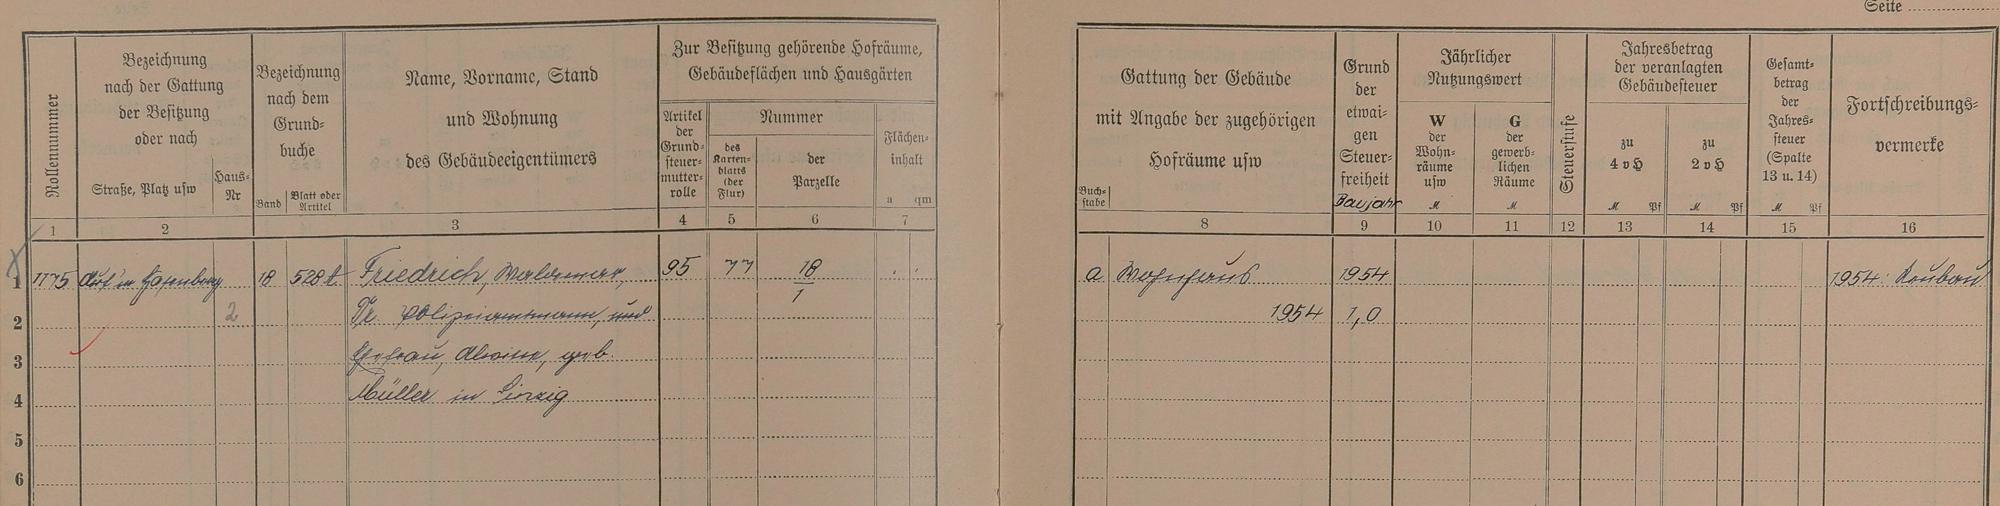 Seite
Rollennummer
Bezeichnung
nach der Gattung
der Besitzung
oder nach
Straße, Platz usw
Haus-
Nr
Bezeichnung
nach dem
Grund-
buche
Band
Blatt oder
Artikel
Name, Vorname, Stand
und Wohnung
des Gebäudeeigentümers
Zur Besitzung gehörende Hofräume,
Gebäudeflächen und Hausgärten
Artikel
der
Grund-
steuer-
mutter-
rolle
Nummer
des
Karten-
blatts
(der
Flur)
der
Parzelle
Flächen-
inhalt
a qm
1 2 3 4 5 6 7
1 1175 Auf'm Hasenberg 18 528A Friedrich, Waldemar, 95 77 18/1
2 2 Dr. Polizeiamtmann, und
3 Ehefrau, Alwine, geb.
4 Müller in Sinzig
5
6
Buch-
stabe
Gattung der Gebäude
mit Angabe der zugehörigen
Hofräume usw
Grund
der
etwai-
gen
Steuer-
freiheit
Baujahr
Jährlicher
Nutzungswert
W
der
Wohn-
räume
usw
M
G
der
gewerb-
lichen
Räume
M
Steuerstufe
Jahresbetrag
der veranlagten
Gebäudesteuer
zu
4 v H
M Pf
zu
2 v H
M Pf
Gesamt-
betrag
der
Jahres-
steuer
(Spalte
13 u. 14)
M Pf
Fortschreibungs-
vermerke
8 9 10 11 12 13 14 15 16
a Wohnhaus 1954 1954: Neubau
1954 1,0